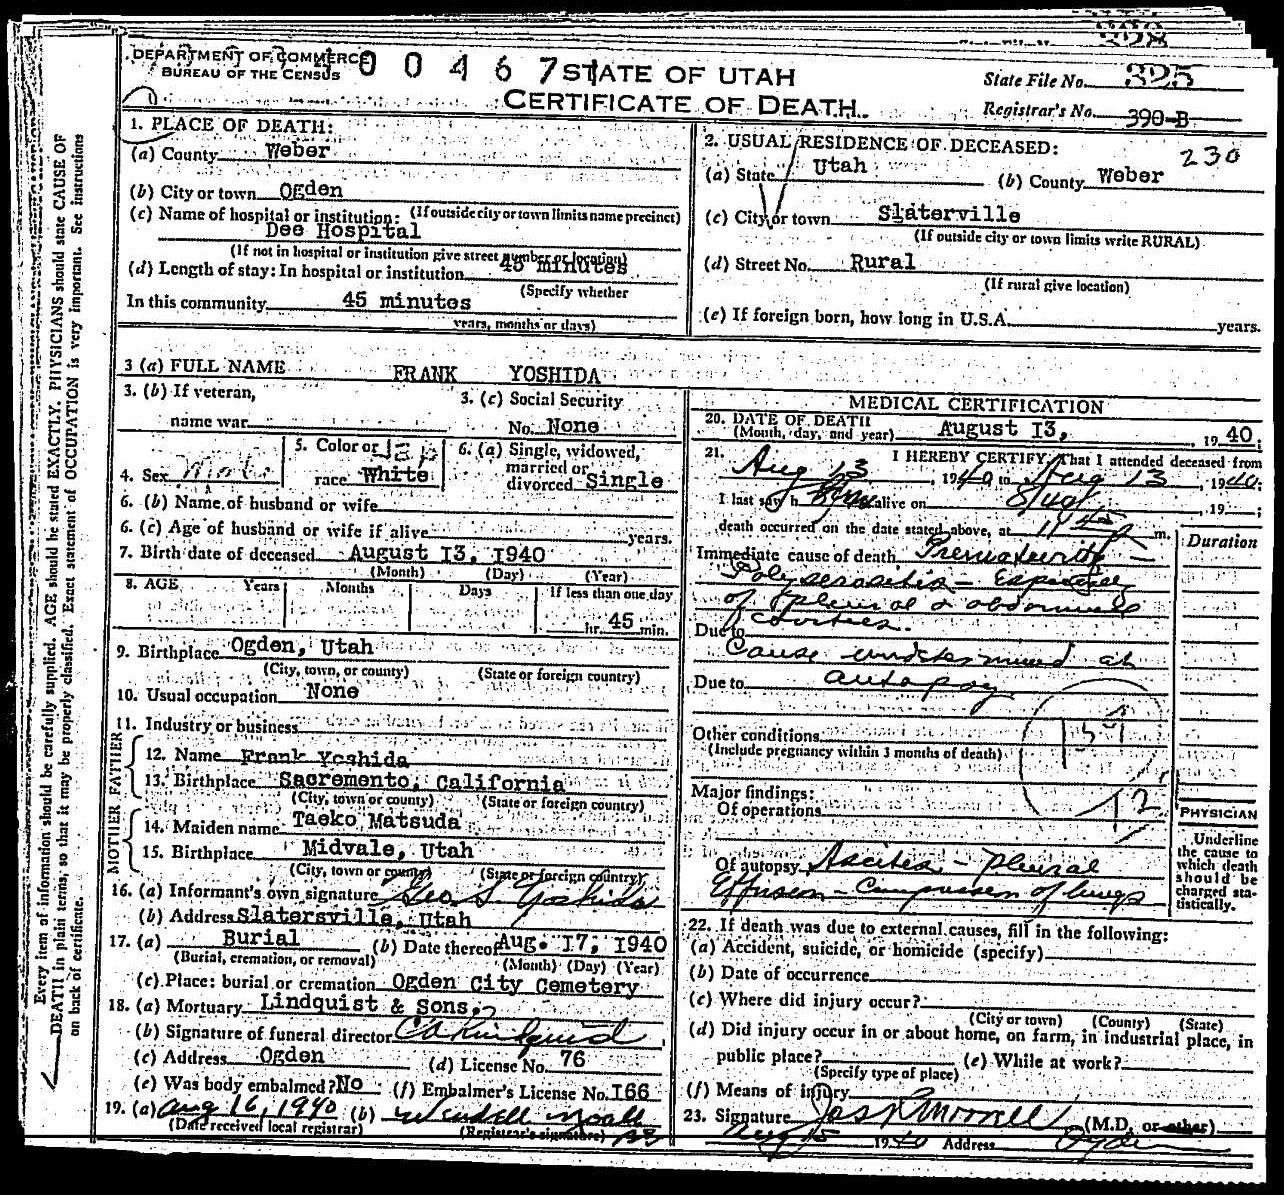 DEPARTMENT OF COMMERCE
BUREAU OF THE CENSUS
00467
STATE OF UTAH
CERTIFICATE OF DEATH
State File No. 325
Registrar's No. 390-B
1. PLACE OF DEATH:
(a) County Weber
(b) City or town Ogden
(c) Name of hospital or institution: (If outside city or town limits name precinct)
Dee Hospital
(If not in hospital or institution give street number or location)
(d) Length of stay: In hospital or institution 45 minutes
(Specify whether
In this community 45 minutes
years, months or days)
2. USUAL RESIDENCE OF DECEASED:
230
(a) State Utah (b) County Weber
(c) City or town Slaterville
(If outside city or town limits write RURAL)
(d) Street No. Rural
(If rural give location)
(e) If foreign born, how long in U.S.A. years.
3 (a) FULL NAME FRANK YOSHIDA
3. (b) If veteran,
name war
3. (c) Social Security
No. None
4. Sex Male
5. Color or Jap
race White
6. (a) Single, widowed,
married or
divorced Single
6. (b) Name of husband or wife
6. (c) Age of husband or wife if alive years.
7. Birth date of deceased August I3, I940
(Month) (Day) (Year)
8. AGE Years Months Days If less than one day
hr. 45 min.
9. Birthplace Ogden, Utah
(City, town, or county) (State or foreign country)
10. Usual occupation None
11. Industry or business
FATHER
12. Name Frank Yoshida
13. Birthplace Sacremento, California
(City, town or county) (State or foreign country)
MOTHER
14. Maiden name Taeko Matsuda
15. Birthplace Midvale, Utah
(City, town or county) (State or foreign country)
16. (a) Informant's own signature Geo. S. Yoshida
(b) Address Slatersville, Utah
17. (a) Burial (b) Date thereof Aug. I7, I940
(Burial, cremation, or removal) (Month) (Day) (Year)
(c) Place: burial or cremation Ogden City Cemetery
18. (a) Mortuary Lindquist & Sons,
(b) Signature of funeral director
(c) Address Ogden (d) License No. 76
(e) Was body embalmed? No (f) Embalmer's License No. I66
19. (a) Aug 16, 1940 (b) Wendell Noall
(Date received local registrar) (Registrar's signature)
MEDICAL CERTIFICATION
20. DATE OF DEATH
(Month, day, and year) August I3, , 19 40;
21. I HEREBY CERTIFY, That I attended deceased from
Aug 13 , 1940 to Aug 13 , 1940;
I last saw h alive on , 19 ;
death occurred on the date stated above, at m.
Duration
Immediate cause of death Prematurity -
Polyserositis - Especially
of pleural & abdominal
cavities.
Due to
Cause undetermined at
Due to autopsy
Other conditions
(Include pregnancy within 3 months of death)
Major findings:
Of operations
Of autopsy Ascites - plural
Effusion - Compression of lungs
PHYSICIAN
Underline
the cause to
which death
should be
charged sta-
tistically.
22. If death was due to external causes, fill in the following:
(a) Accident, suicide, or homicide (specify)
(b) Date of occurrence
(c) Where did injury occur?
(City or town) (County) (State)
(d) Did injury occur in or about home, on farm, in industrial place, in
public place? (e) While at work?
(Specify type of place)
(f) Means of injury
23. Signature (M.D. or other)
Aug 15 1940 Address Ogden
Every item of information should be carefully supplied. AGE should be stated EXACTLY. PHYSICIANS should state CAUSE OF
DEATH in plain terms, so that it may be properly classified. Exact statement of OCCUPATION is very important. See instructions
on back of certificate.